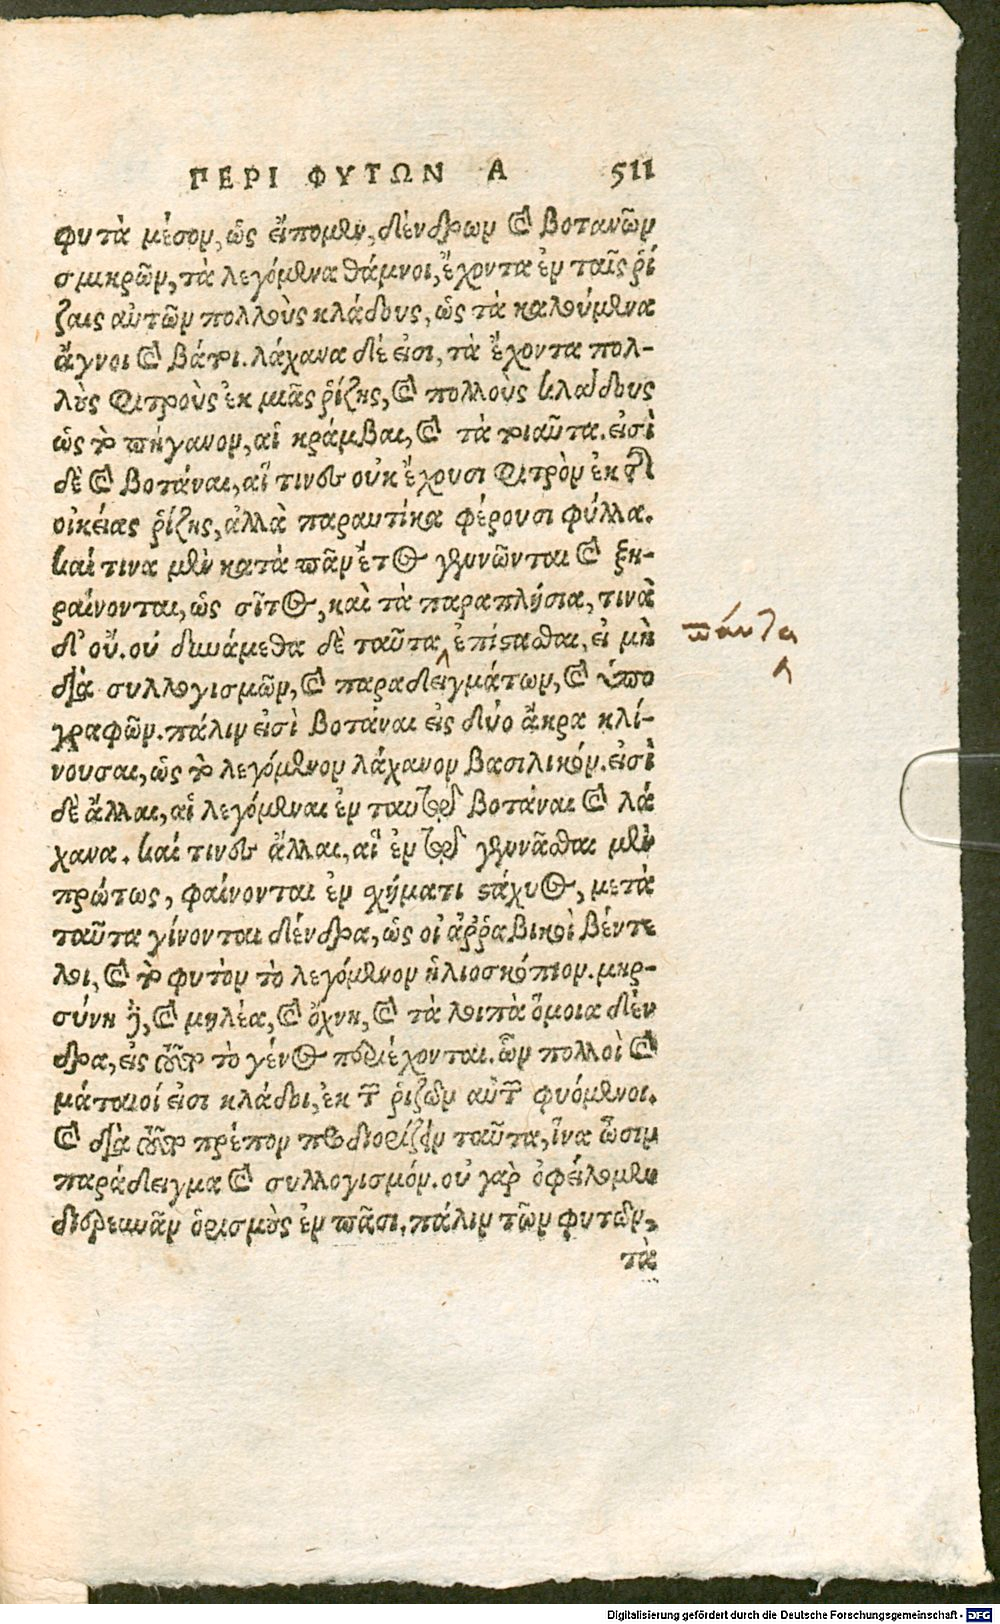 ΠΕΡΙ ΦΥΤΩΝ Α 511
φυτὰ μέσον, ὡς εἴπομεν, δένδρων καὶ βοτανῶν
σμικρῶν, τὰ λεγόμενα θάμνοι, ἔχοντα ἐν ταῖς ῥί
ζαις αὐτῶν πολλοὺς κλάδους, ὡς τὰ καλούμενα
ἄγνοι καὶ βάτοι. λάχανα δέ εἰσι, τὰ ἔχοντα πολ-
λοὺς σιτροὺς ἐκ μιᾶς ῥίζης, καὶ πολλοὺς κλάδους
ὡς τὸ πήγανον, αἱ κράμβαι, καὶ τὰ τοιαῦτα. εἰσὶ
δὲ καὶ βοτάναι, αἵ τινες οὐκ ἔχουσι σιτρὸν ἐκ τῆς
οἰκείας ῥίζης, ἀλλὰ παραυτίκα φέρουσι φύλλα.
καί τινα μὲν κατὰ πᾶν ἔτος γεννῶνται καὶ ξη-
ραίνονται, ὡς σῖτος, καὶ τὰ παραπλήσια, τινὰ
δ' οὔ. οὐ δυνάμεθα δὲ ταῦτα ἐπίστασθαι, εἰ μὴ
πάντα
διὰ συλλογισμῶν, καὶ παραδειγμάτων, καὶ ὑπο
γραφῶν. πάλιν εἰσὶ βοτάναι εἰς δύο ἄκρα κλί-
νουσαι, ὡς τὸ λεγόμενον λάχανον βασιλικόν. εἰσὶ
δὲ ἄλλαι, αἱ λεγόμεναι ἐν ταυτῷ βοτάναι καὶ λά
χανα. καί τινες ἄλλαι, αἳ ἐν τῷ γεννᾶσθαι μὲν
πρώτως, φαίνονται ἐν σχήματι στάχυος, μετὰ
ταῦτα γίνονται δένδρα, ὡς οἱ ἀῤῥαβικοὶ βέντε
λοι, καὶ τὸ φυτὸν τὸ λεγόμενον ἡλιοσκόπιον. μηρ-
σύνη δὲ, καὶ μηλέα, καὶ ὄχνη, καὶ τὰ λοιπὰ ὅμοια δέν
δρα, εἰς τοῦτο τὸ γένος περιέχονται. ὧν πολλοὶ καὶ
μάταιοί εἰσι κλάδοι, ἐκ τῶν ῥιζῶν αὐτῶν φυόμενοι.
καὶ διὰ τοῦτο πρέπον προδιορίζειν ταῦτα, ἵνα ὦσιν
παράδειγμα καὶ συλλογισμόν. οὐ γὰρ ὀφείλομεν
διερευνᾶν ὁρισμοὺς ἐν πᾶσι. πάλιν τῶν φυτῶν,
τὰ
Digitalisierung gefördert durch die Deutsche Forschungsgemeinschaft - DFG